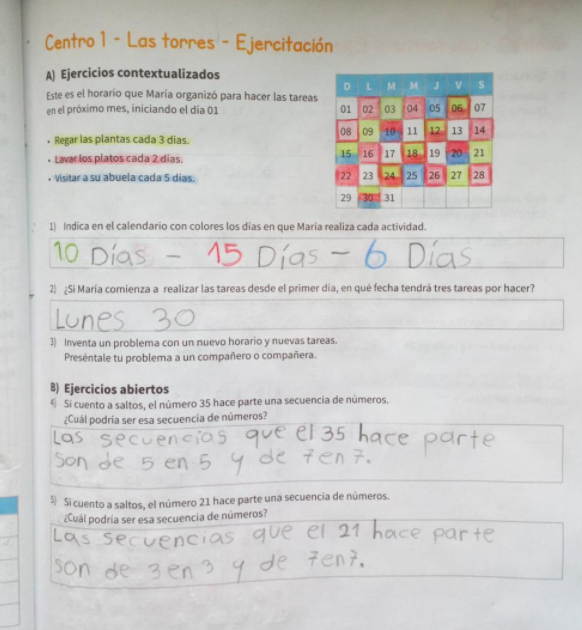 Centro 1 - Las torres - Ejercitación
A) Ejercicios contextualizados
Este es el horario que María organizó para hacer las tareas
en el próximo mes, iniciando el día 01
• Regar las plantas cada 3 días.
• Lavar los platos cada 2 días.
• Visitar a su abuela cada 5 días.
D L M M J V S
01 02 03 04 05 06 07
08 09 10 11 12 13 14
15 16 17 18 19 20 21
22 23 24 25 26 27 28
29 30 31
1) Indica en el calendario con colores los días en que María realiza cada actividad.
10 Días - 15 Días - 6 Días
2) ¿Si María comienza a realizar las tareas desde el primer día, en qué fecha tendrá tres tareas por hacer?
Lunes 30
3) Inventa un problema con un nuevo horario y nuevas tareas.
Preséntale tu problema a un compañero o compañera.
B) Ejercicios abiertos
4) Si cuento a saltos, el número 35 hace parte una secuencia de números.
¿Cuál podría ser esa secuencia de números?
Las secuencias que el 35 hace parte
son de 5 en 5 y de 7 en 7.
5) Si cuento a saltos, el número 21 hace parte una secuencia de números.
¿Cuál podría ser esa secuencia de números?
Las secuencias que el 21 hace parte
son de 3 en 3 y de 7 en 7.